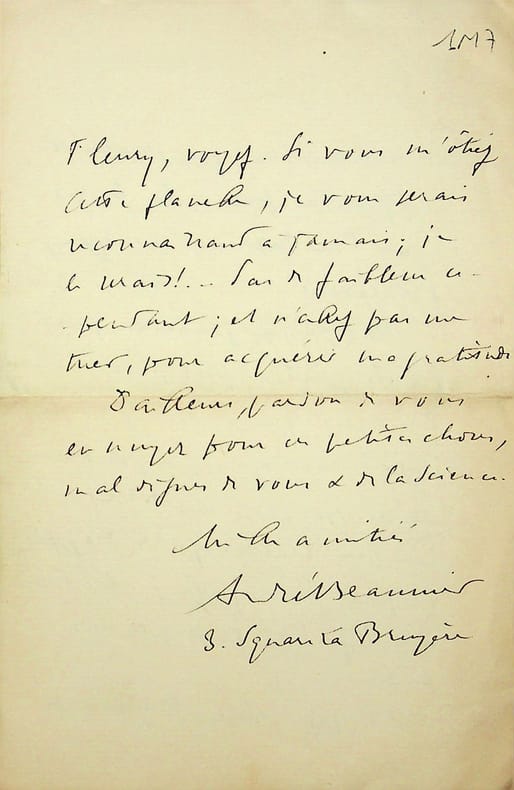 1M7
Fleury, voyez. Si vous m'ôtiez
cette planche, je vous serais
reconnaissant à jamais ; je
le serais !... Pas de faiblesse ce-
pendant ; et n'allez pas me
tuer, pour acquérir ma gratitude
D'ailleurs, pardon de vous
ennuyer pour ces petites choses,
mal dignes de vous & de la Science.
Mille amitiés
André Beaunier
3. Square La Bruyère